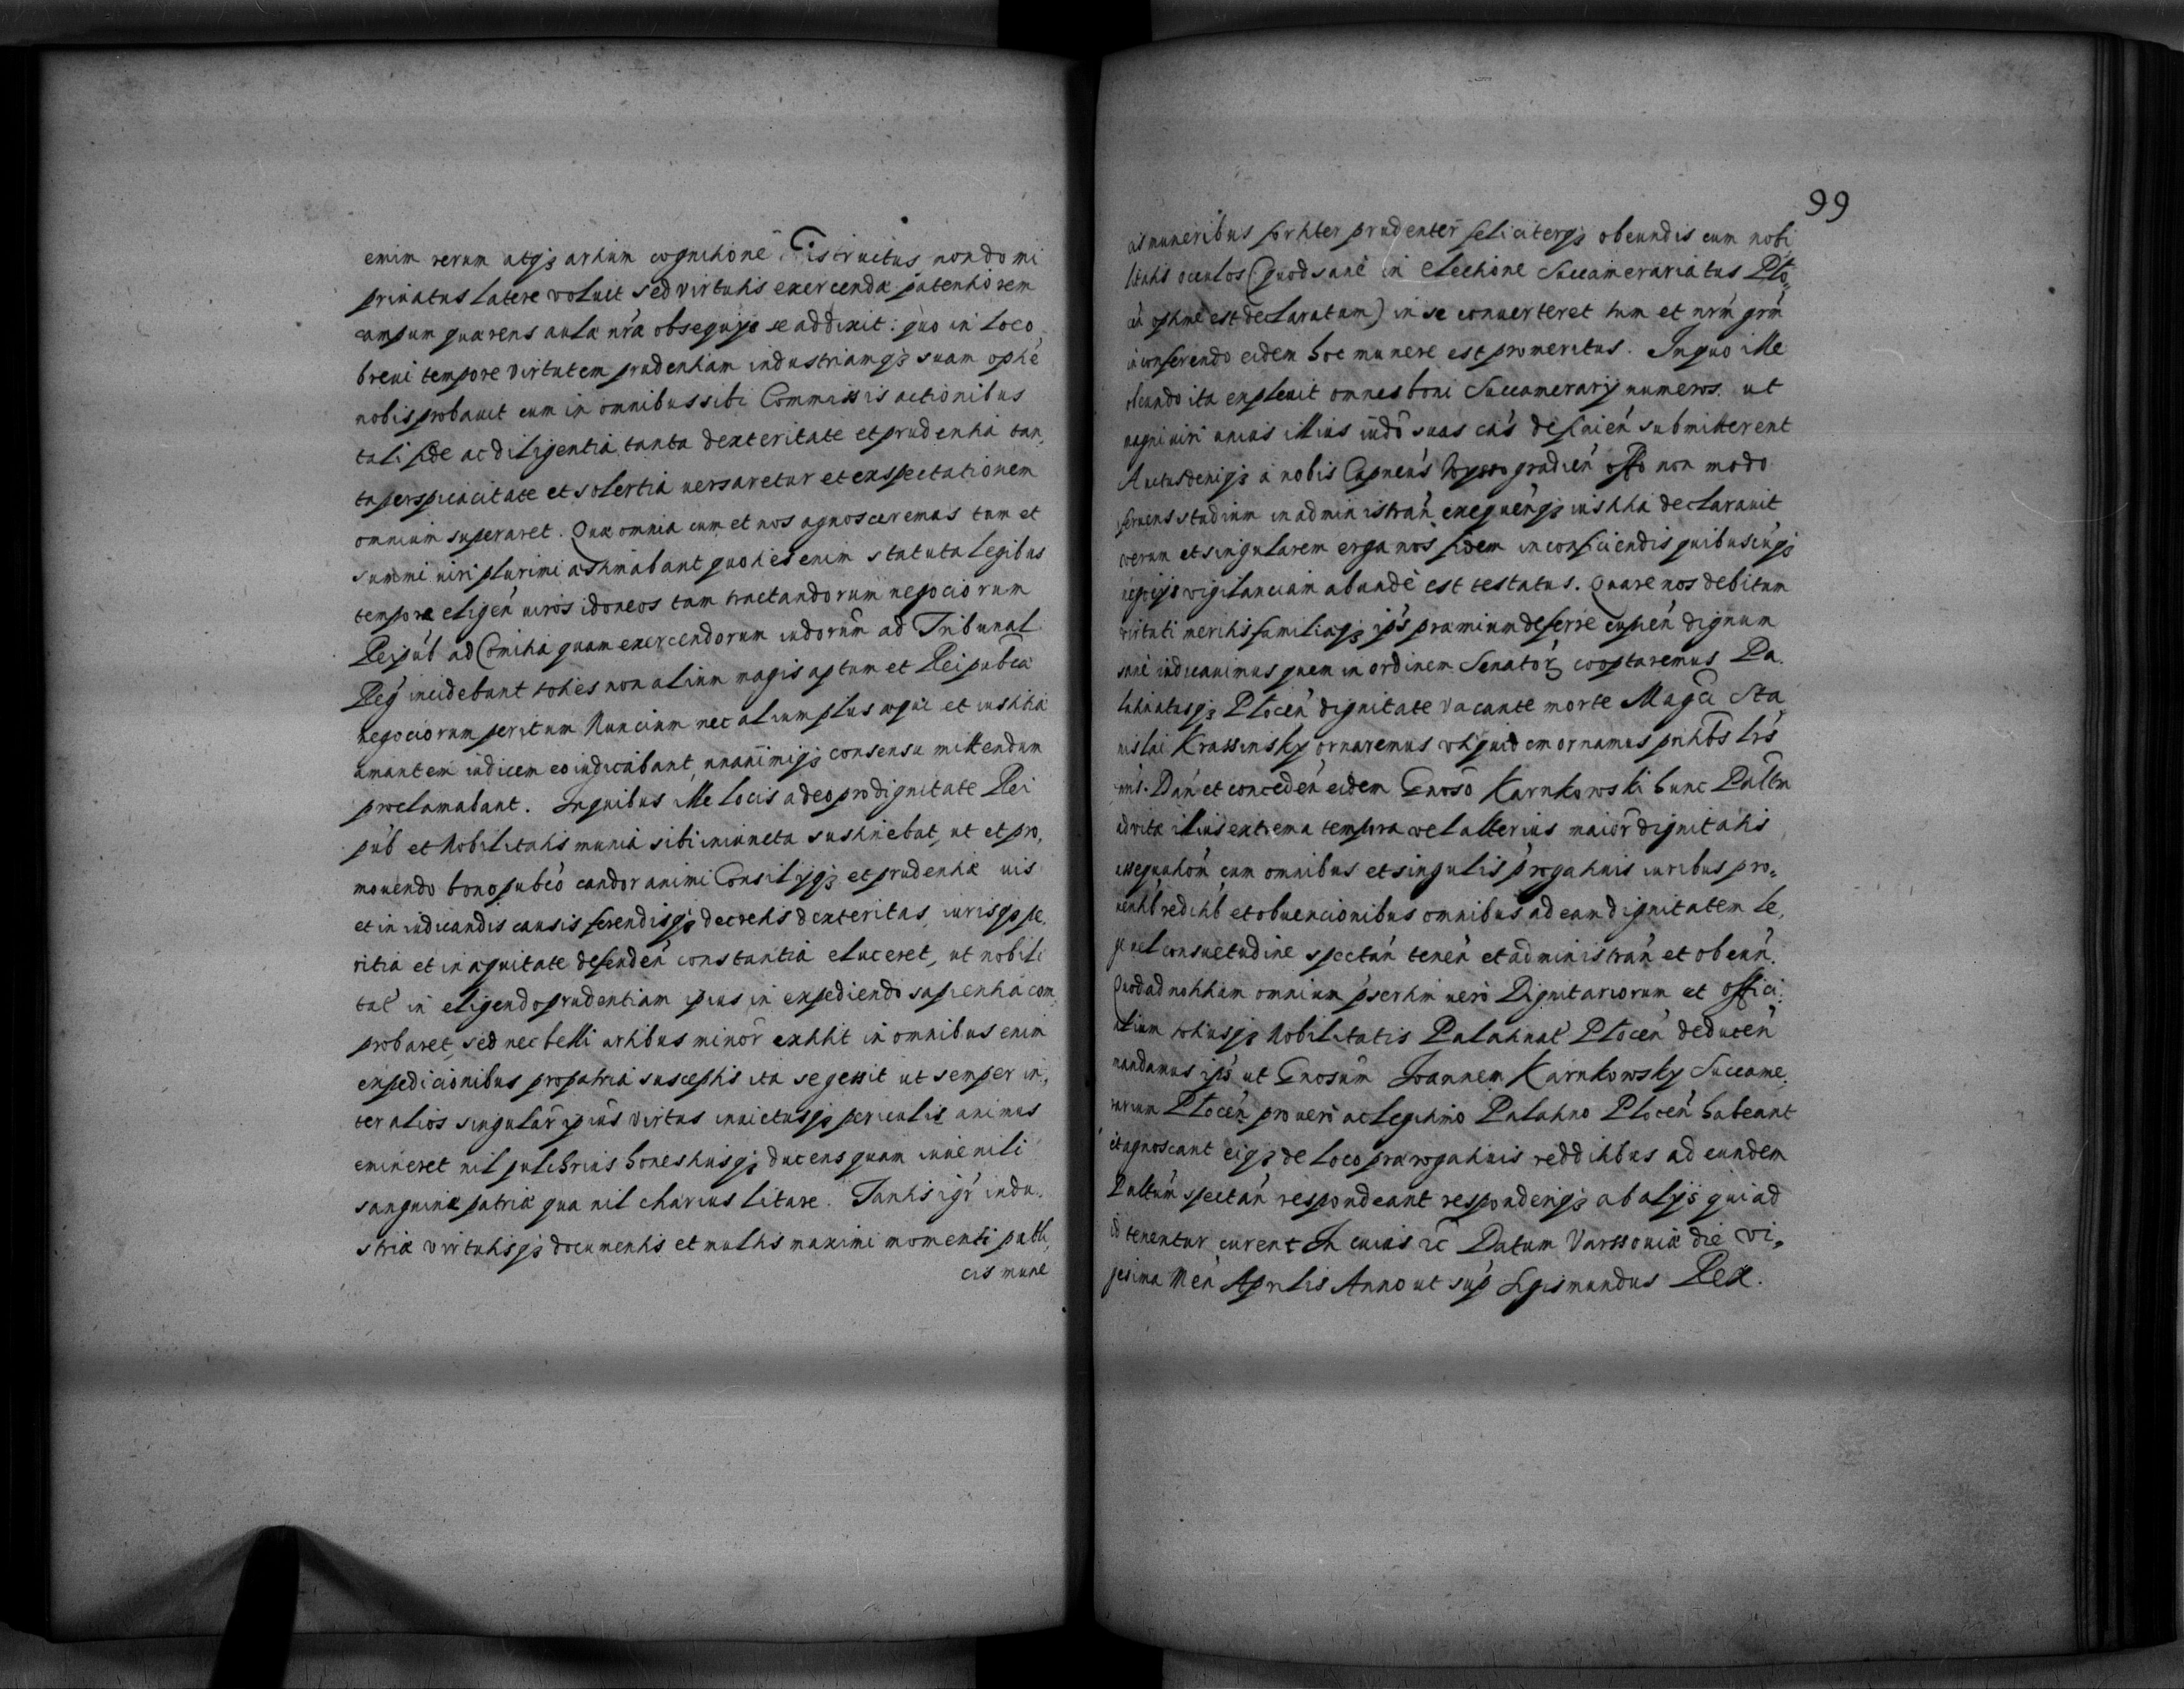 enim rerum atqȝ artium cognitione Instructus non domi
priuatus latere voluit sed virtutis exercendæ patentiorem
campum quærens aulæ nr̃æ obsequijs se addixit: quo in loco
breui tempore virtutem prudentiam industriamqȝ suam optie
nobis probauit cum in omnibus sibi Commissis actionibus
tali fide ac diligentia tanta dexteritate et prudentia tan,
ta perspicacitate et solertia uersaretur et exspectationem
omnium superaret. Quæ omnia cum et nos agnosceremus tum et
summi uiri plurimi æstimabant quoties enim statuta legibus
tempora eligeń uiros idoneos tam tractandorum negociorum
Reipub́ ad Comitia quam exercendorum iudiorum̃ ad Tribunal
Reg̃ incidebant toties non alium magis aptum et Reipubcæ
negociorum peritum Nuncium nec alium plus æqui et iustitiæ
amantem iudicem eo iudicabant, unanimiqȝ consensu mittendum
proclamabant. In quibus ille locis adeo pro dignitate Rei
pub́ et Nobilitatis munia sibi iniuncta sustinebat, ut et pro,
mouendo bono pubco candor animi Consilijqȝ et prudentiæ uis
et in iudicandis causis ferendisqȝ decretis dexteritas, iurisqȝ pe,
ritia et in æquitate defendeń constantia eluceret, ut nobili
tat́ in eligendo prudentiam ipius in expediendo sapientia com,
probaret, sed nec belli artibus minor extitit in omnibus enim
expedicionibus pro patria susceptis ita se gessit ut semper in,
ter alios singular̃ ipius virtus inuictusqȝ periculis animus
emineret nil pulchrius honestiusqȝ ducens quam iuuenili
sanguine patriæ qua nil charius litare. Tantis igr̃ indu,
striæ virtutisqȝ documentis et multis maximi momenti publi,
cis mune
99
cis muneribus fortiter prudenter feliciterqȝ obeundis eum nobi
litatis oculos (quod sane in electione Succamerariatus Plo,
ceń optime est declaratum) in se conuerteret tum et nrm̃ grm̃
in conferendo eidem hoc munere est promeritus. In quo ille
obeundo ita expleuit omnes boni Succamerarij numeros. ut
magni uiri unius illius iudo suas cas definień submitterent
Auctus deniqȝ a nobis Capneus Wyssogradień offo non modo
feruens studium in administrań exequenqȝ iustitia declarauit
verum et singularem erga nos fidem in conficiendis quibuscunqȝ
negocijs vigilanciam abunde est testatus. Quare nos debitum
virtuti meritis familiæqȝ ips præmium deferre cupień dignum
sane iudicauimus quem in ordinem Senatorȝ cooptaremus Pa,
latinatusqȝ Ploceń dignitate vacante morte Magci Sta
nislai Krassinsky ornaremus uti quidem ornamus pntibs lrs
nris. Dań et concedeń eidem Gnoso Karnkowski hunc Paltm
ad vitæ illius extrema tempora vel alterius maior̃ dignitatis
assequutioń cum omnibus et singulis progatiuis iuribus pro,
uentib́ redihb́ et obuencionibus omnibus ad eam dignitatem le,
ge uel consuetudine spectań teneń et administrań et obeuń.
Quod ad notitiam omnium pserhm uero Dignitariorum et offici,
alium totiusqȝ Nobilitatis Palatinat́ Ploceń deduceń
mandamus ips ut Gnosum Joannem Karnkowsky Succame,
rarium Ploceń pro uero ac legitimo Palatino Ploceń habeant
et agnoscant eiqȝ de loco prærogatiuis redditibus ad eundem
Paltum spectań respondeant responderiqȝ ab alijs qui ad
id tenentur curent In cuius rc̃ Datum Varssouiæ die vi,
gesima Meń Aprilis Anno ut sup̃ Sigismundus Rex.